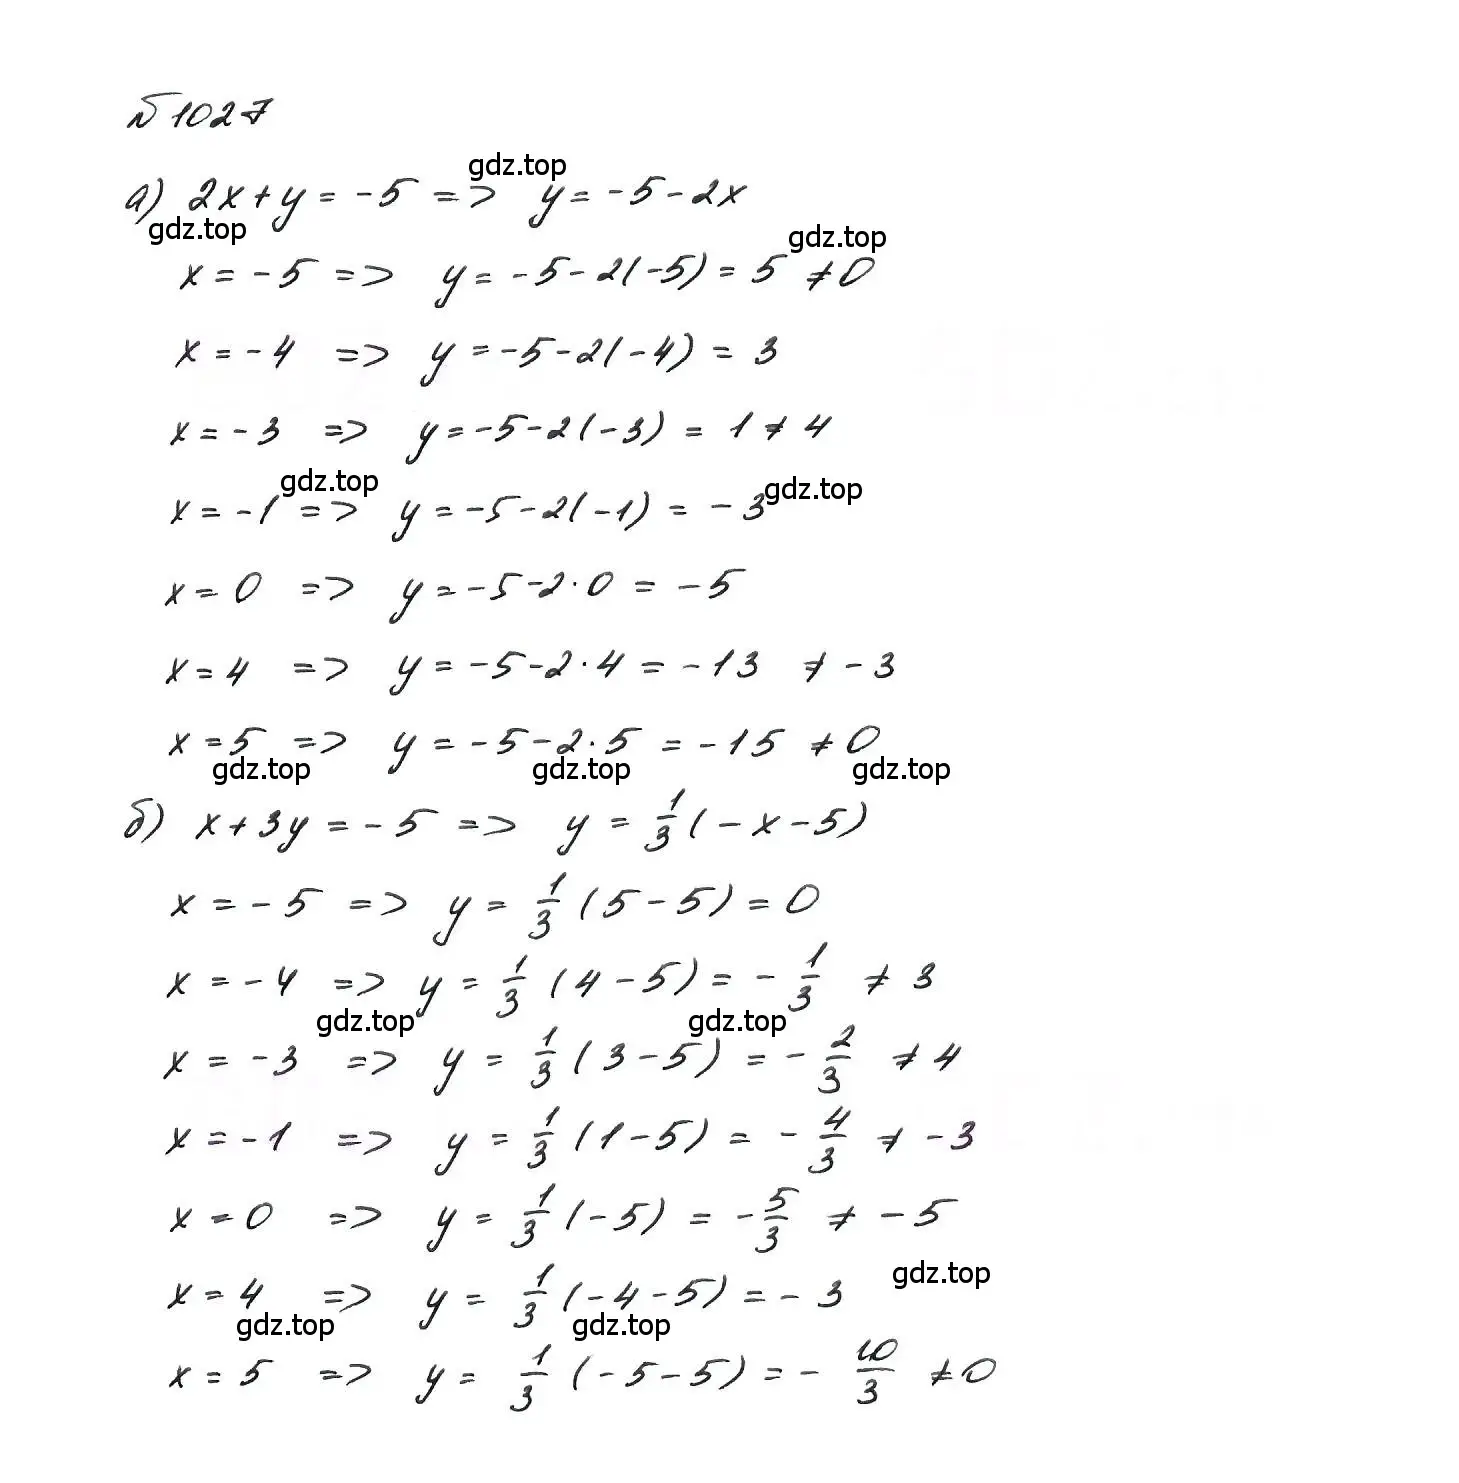 №1027
gdz.top
а) 2x+y=-5 => y=-5-2x
gdz.top gdz.top
x=-5 => y=-5-2(-5)=5 ≠0
x=-4 => y=-5-2(-4)=3
x=-3 => y=-5-2(-3)=1≠4
gdz.top gdz.top
x=-1 => y=-5-2(-1)=-3
x=0 => y=-5-2·0=-5
x=4 => y=-5-2·4=-13 ≠-3
x=5 => y=-5-2·5=-15 ≠0
gdz.top gdz.top gdz.top
б) x+3y=-5 => y=1/3(-x-5)
x=-5 => y=1/3(5-5)=0
x=-4 => y=1/3(4-5)=-1/3 ≠3
gdz.top gdz.top
x=-3 => y=1/3(3-5)=-2/3 ≠4
x=-1 => y=1/3(1-5)=-4/3 ≠-3
x=0 => y=1/3(-5)=-5/3 ≠-5
gdz.top
x=4 => y=1/3(-4-5)=-3
gdz.top gdz.top
x=5 => y=1/3(-5-5)=-10/3 ≠0